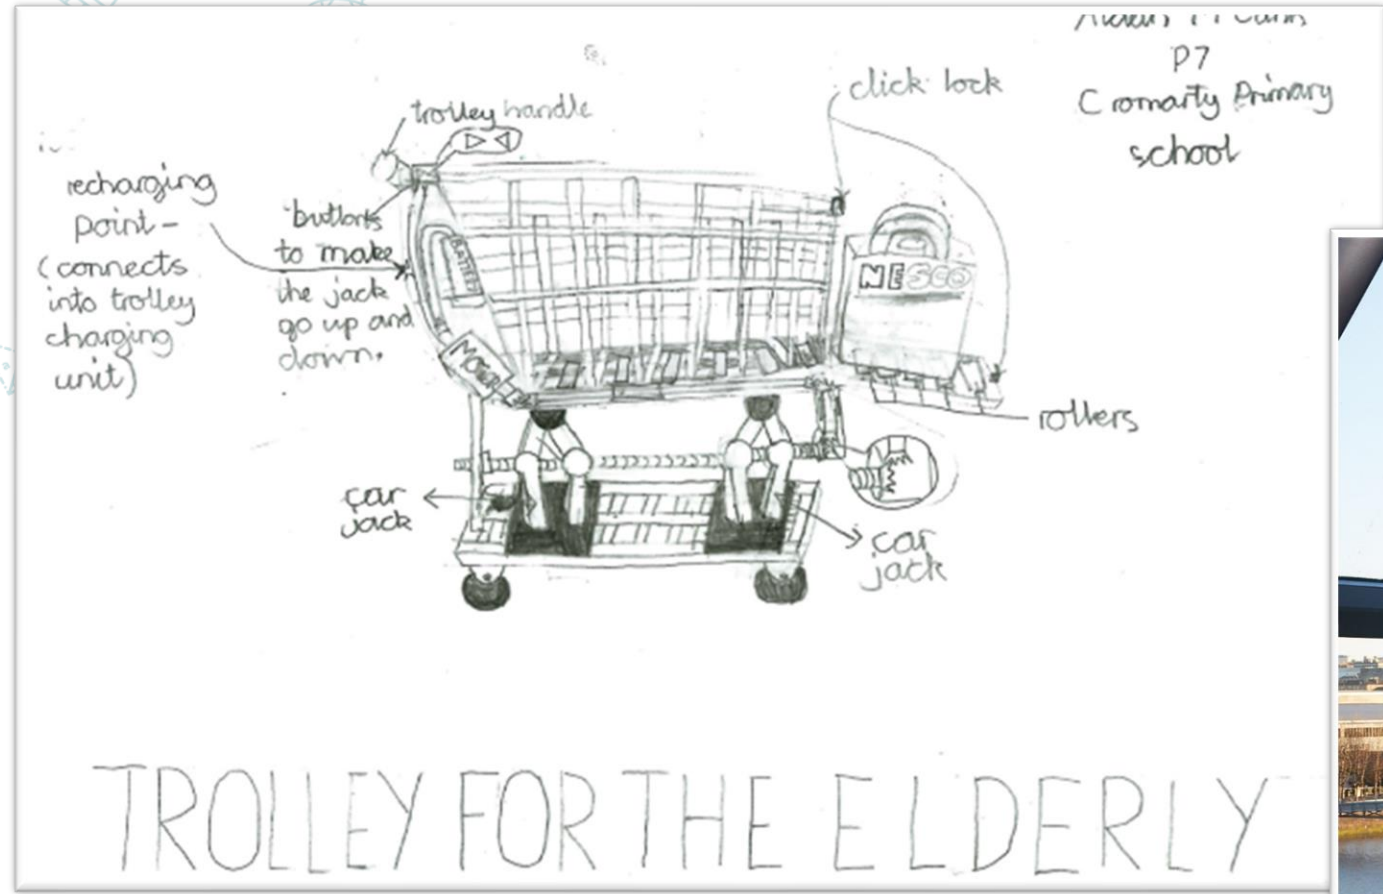 P7
Cromarty Primary
school
click lock
trolley handle
recharging
point-
(connects
into trolley
charging
unit)
buttons
to make
the jack
go up and
down.
NESCO
rollers
car
jack
car
jack
TROLLEY FOR THE ELDERLY